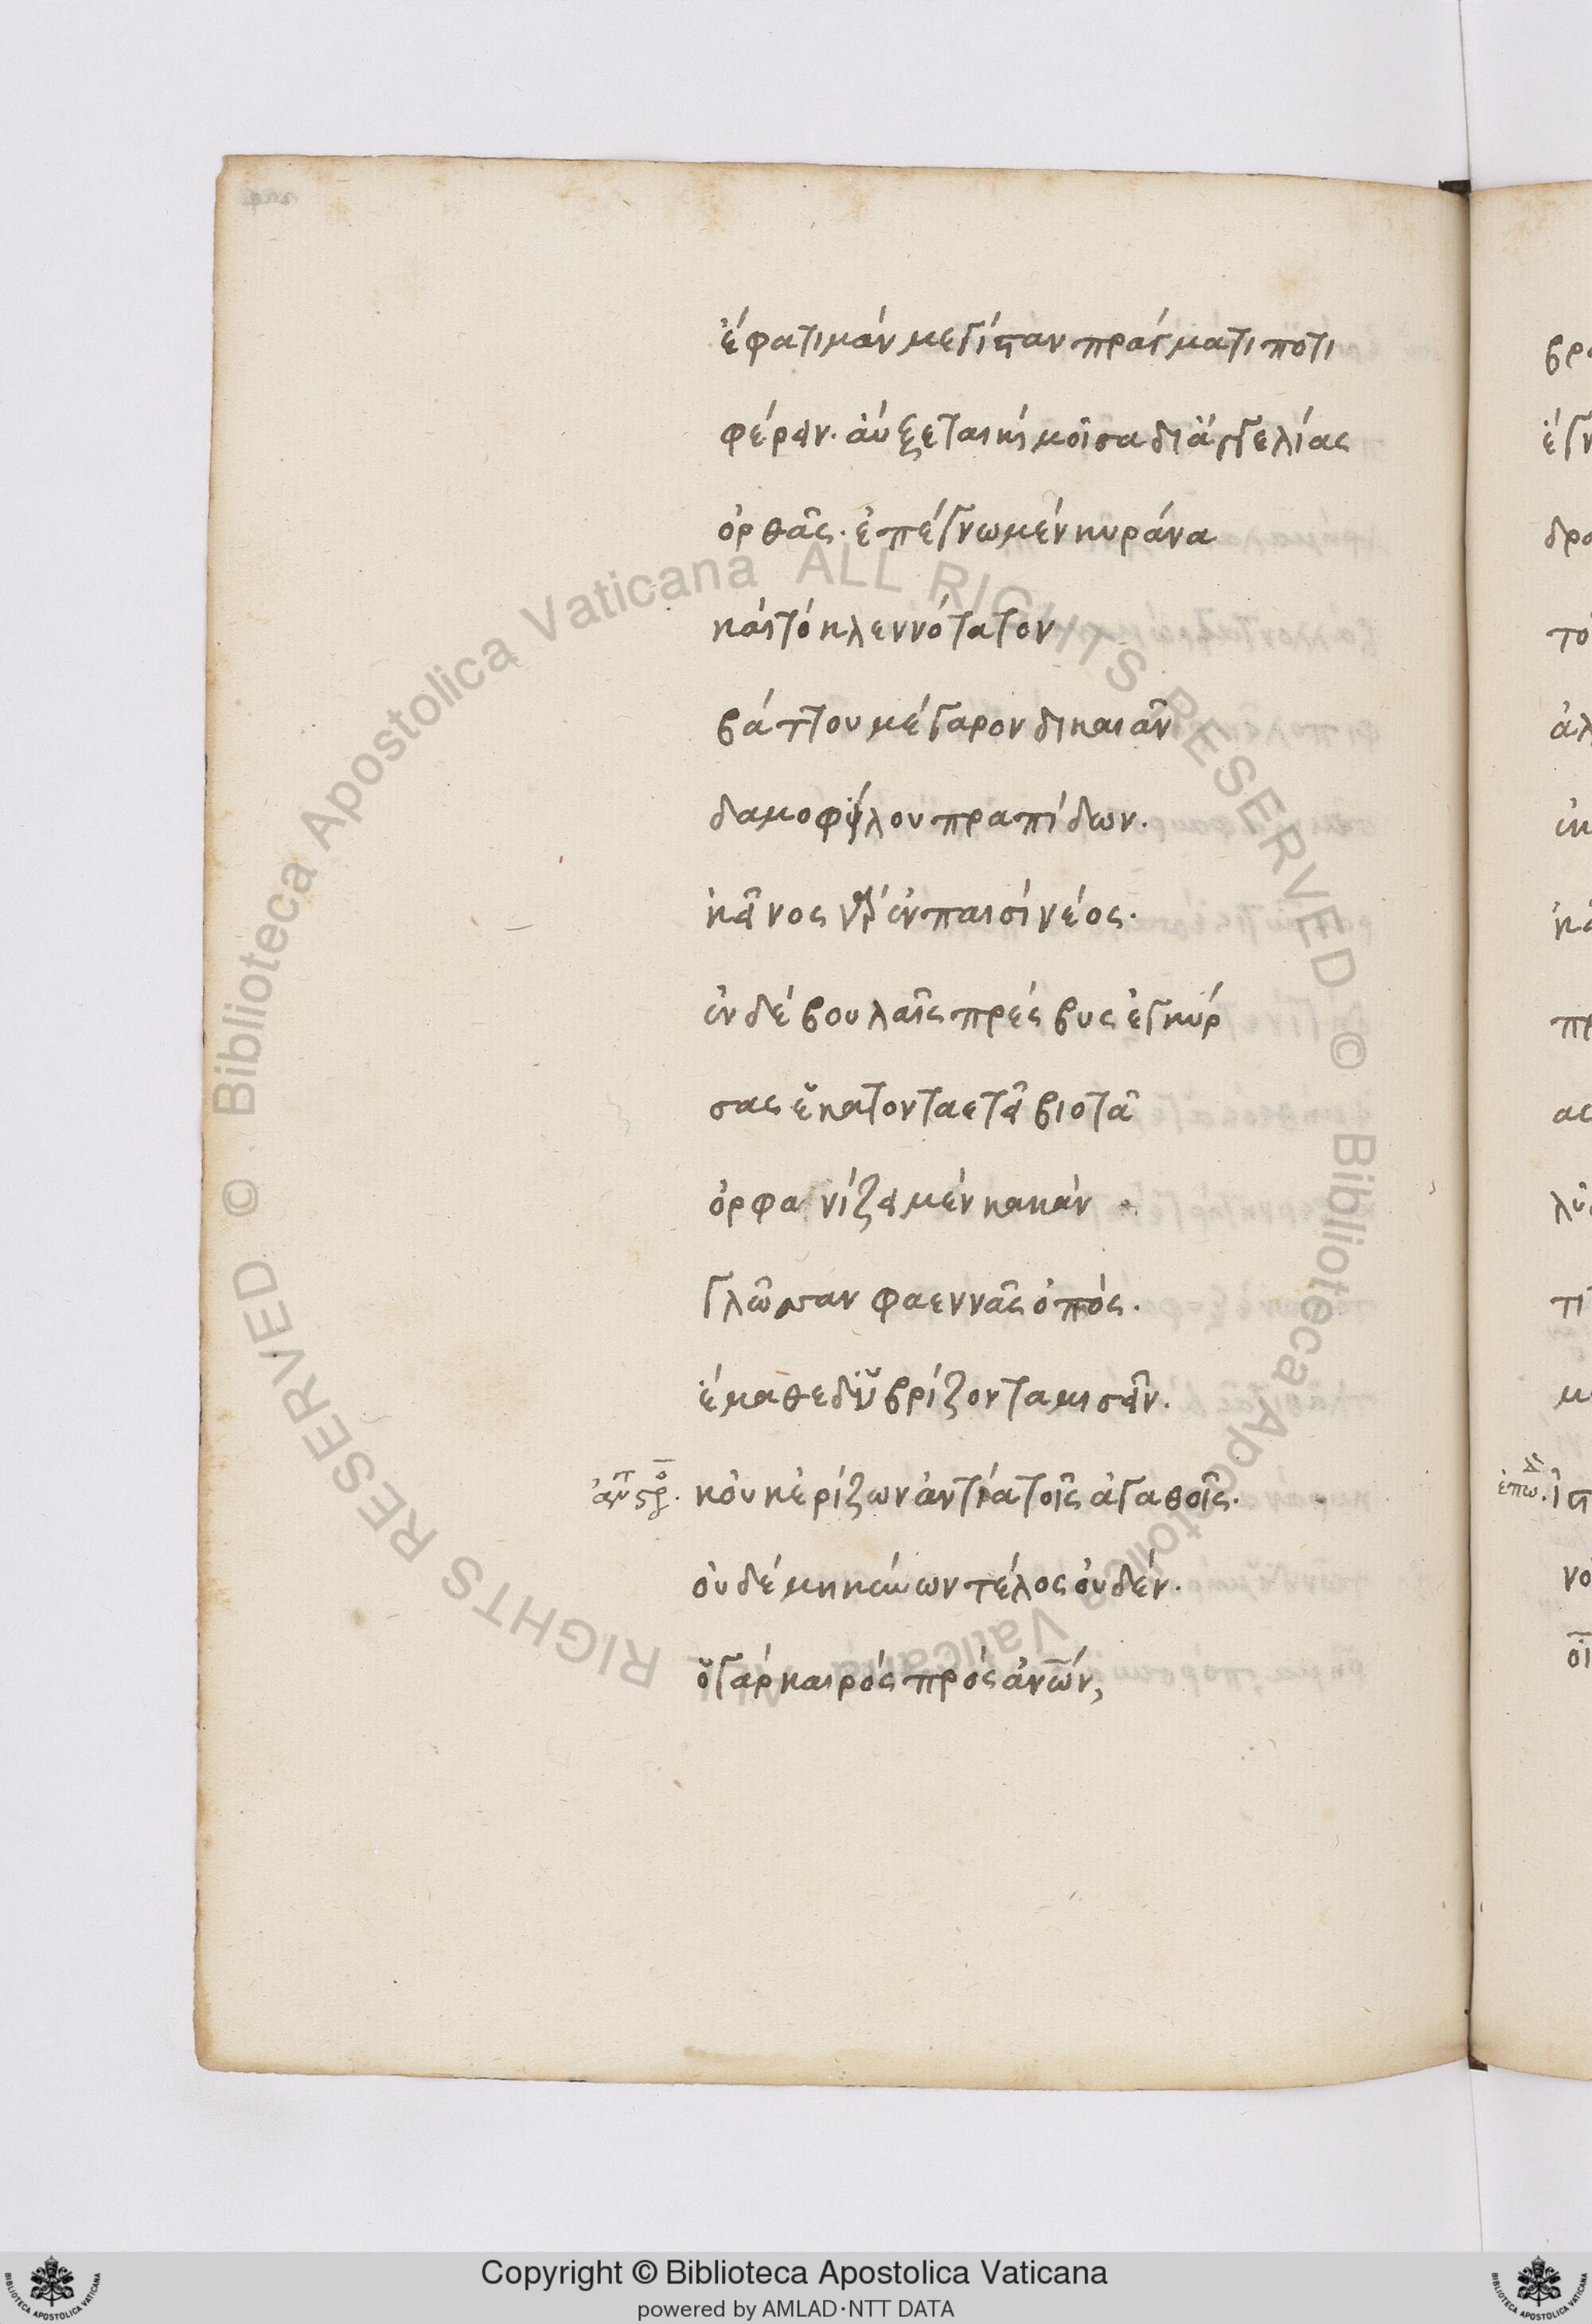 ἔφα τιμὰν μεγίσταν πράγματι ποτὶ
φέρειν. αὔξεται καὶ μοῖσα δι' ἀγγελίας
ὀρθᾶς. ἐπέγνω μὲν κυράνα
καὶ τὸ κλεννότατον
βάττου μέγαρον δικαιᾶν
δαμοφίλου πραπίδων.
κεῖνος γὰρ ἐν παισὶ νέος.
ἐν δὲ βουλαῖς πρέσβυς ἐγκύρ
σας ἑκατονταετεῖ βιοτᾶ
ὀρφανίζει μὲν κακὰν
γλῶσσαν φαεννᾶς ὀπός.
ἔμαθε δ' ὑβρίζοντα μισεῖν.
ἀντιστρο. κοὐκ ἐρίζων ἀντία τοῖς ἀγαθοῖς.
οὐδὲ μηκύνων τέλος οὐδέν.
ὁ γὰρ καιρὸς πρὸς ἀνῶν,
βρ
ἐγ
δρ
το
ἀλ
ἐκ
πρ
ας
λύ
τι
μ
ἐπω. ἰς
νο
οἱ
Biblioteca Apostolica Vaticana ALL RIGHTS RESERVED ©
Biblioteca Apostolica Vaticana ALL RIGHTS RESERVED ©
Copyright © Biblioteca Apostolica Vaticana
powered by AMLAD·NTT DATA